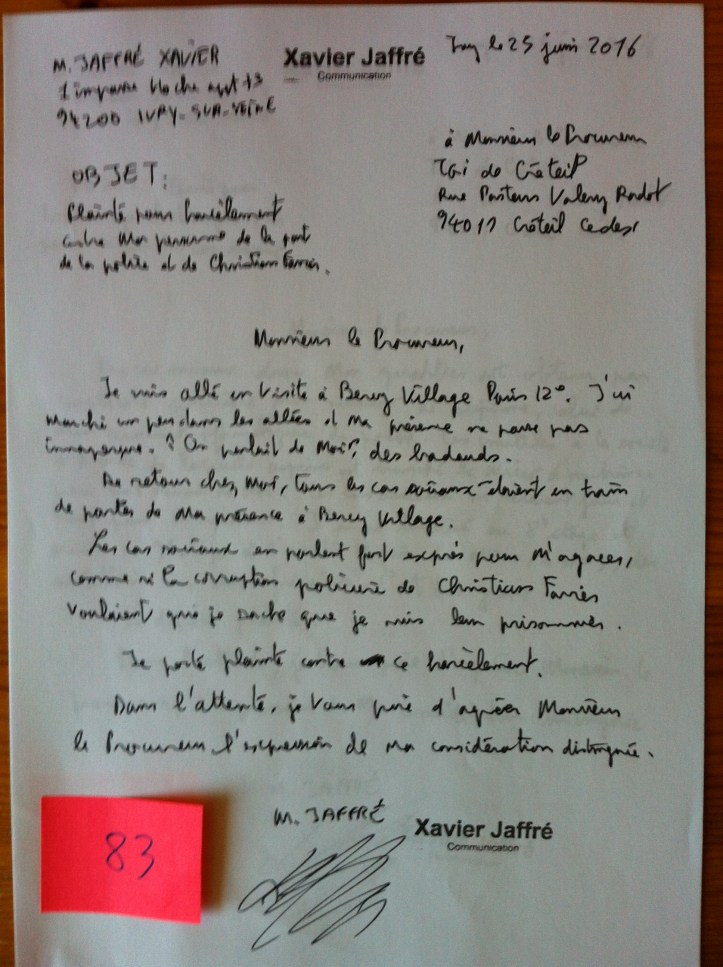 M. JAFFRÉ XAVIER
1 impasse appt 13
94200 IVRY-SUR-SEINE
Xavier Jaffré
Communication
Ivry le 25 juin 2016
à Monsieur le Procureur
TGI de Créteil
Rue Pasteur Valery Radot
94011 Créteil Cedex
OBJET:
Plainte pour harcèlement
contre ma personne de la part
de la police et de Christian Farrés.
Monsieur le Procureur,
Je suis allé en visite à Bercy Village Paris 12e. J'ai
marché un peu dans les allées et ma présence ne passe pas
inaperçue. ? On parlait de moi?, des badauds.
De retour chez moi, tous les cas sociaux étaient en train
de parler de ma présence à Bercy Village.
Les cas sociaux en parlent fort exprès pour m'agacer,
comme si la corruption policière de Christian Farrés
voulaient que je sache que je suis leur prisonnier.
Je porte plainte contre ce harcèlement.
Dans l'attente, je vous prie d'agréer Monsieur
le Procureur l'expression de ma considération distinguée.
M. JAFFRÉ
Xavier Jaffré
Communication
83